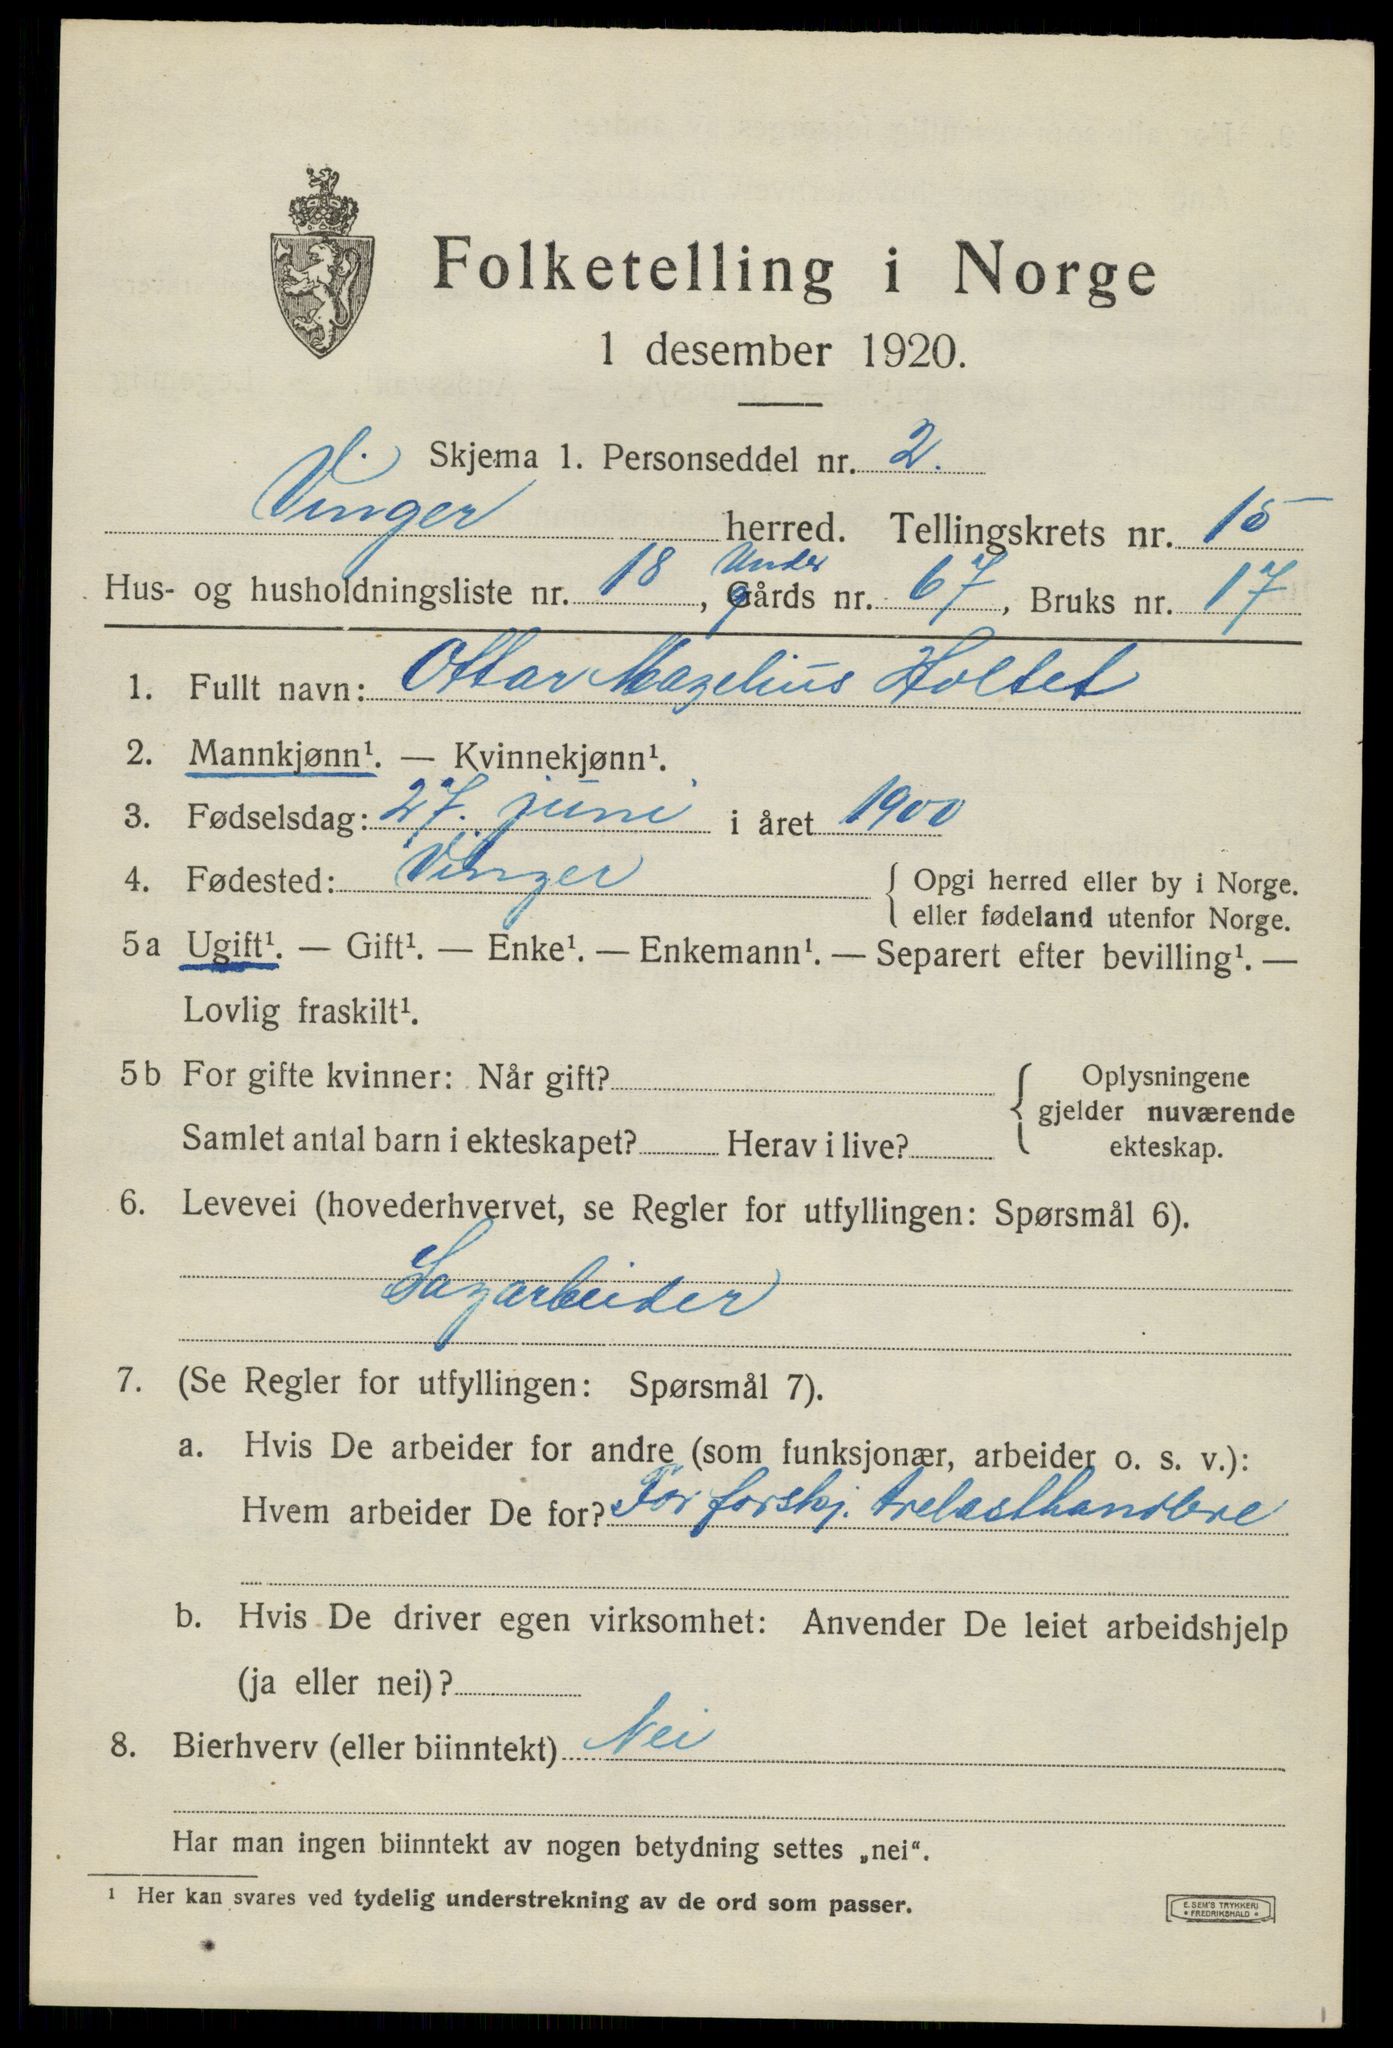 Folketelling i Norge
1 desember 1920.
Skjema 1. Personseddel nr. 2.
Vinger herred. Tellingskrets nr. 15
Under
Hus- og husholdningsliste nr. 18, gårds nr. 67, Bruks nr. 17
1. Fullt navn: Ottar Magelius Holtet
2. Mannkjønn¹. — Kvinnekjønn¹.
3. Fødselsdag: 27. juni i året 1900
4. Fødested: Vinger { Opgi herred eller by i Norge.
eller fødeland utenfor Norge.
5a Ugift¹. — Gift¹. — Enke¹. — Enkemann¹. — Separert efter bevilling¹. —
Lovlig fraskilt¹.
5b For gifte kvinner: Når gift? { Oplysningene
gjelder nuværende
Samlet antal barn i ekteskapet? Herav i live? ekteskap.
6. Levevei (hovederhvervet, se Regler for utfyllingen: Spørsmål 6).
Sagarbeider
7. (Se Regler for utfyllingen: Spørsmål 7).
a. Hvis De arbeider for andre (som funksjonær, arbeider o. s. v.):
Hvem arbeider De for? For forskj. trelasthandlere
b. Hvis De driver egen virksomhet: Anvender De leiet arbeidshjelp
(ja eller nei)?
8. Bierhverv (eller biinntekt) Nei
Har man ingen biinntekt av nogen betydning settes „nei“.
¹ Her kan svares ved tydelig understrekning av de ord som passer.
E. SEM'S TRYKKERI
* FREDRIKSHALD *